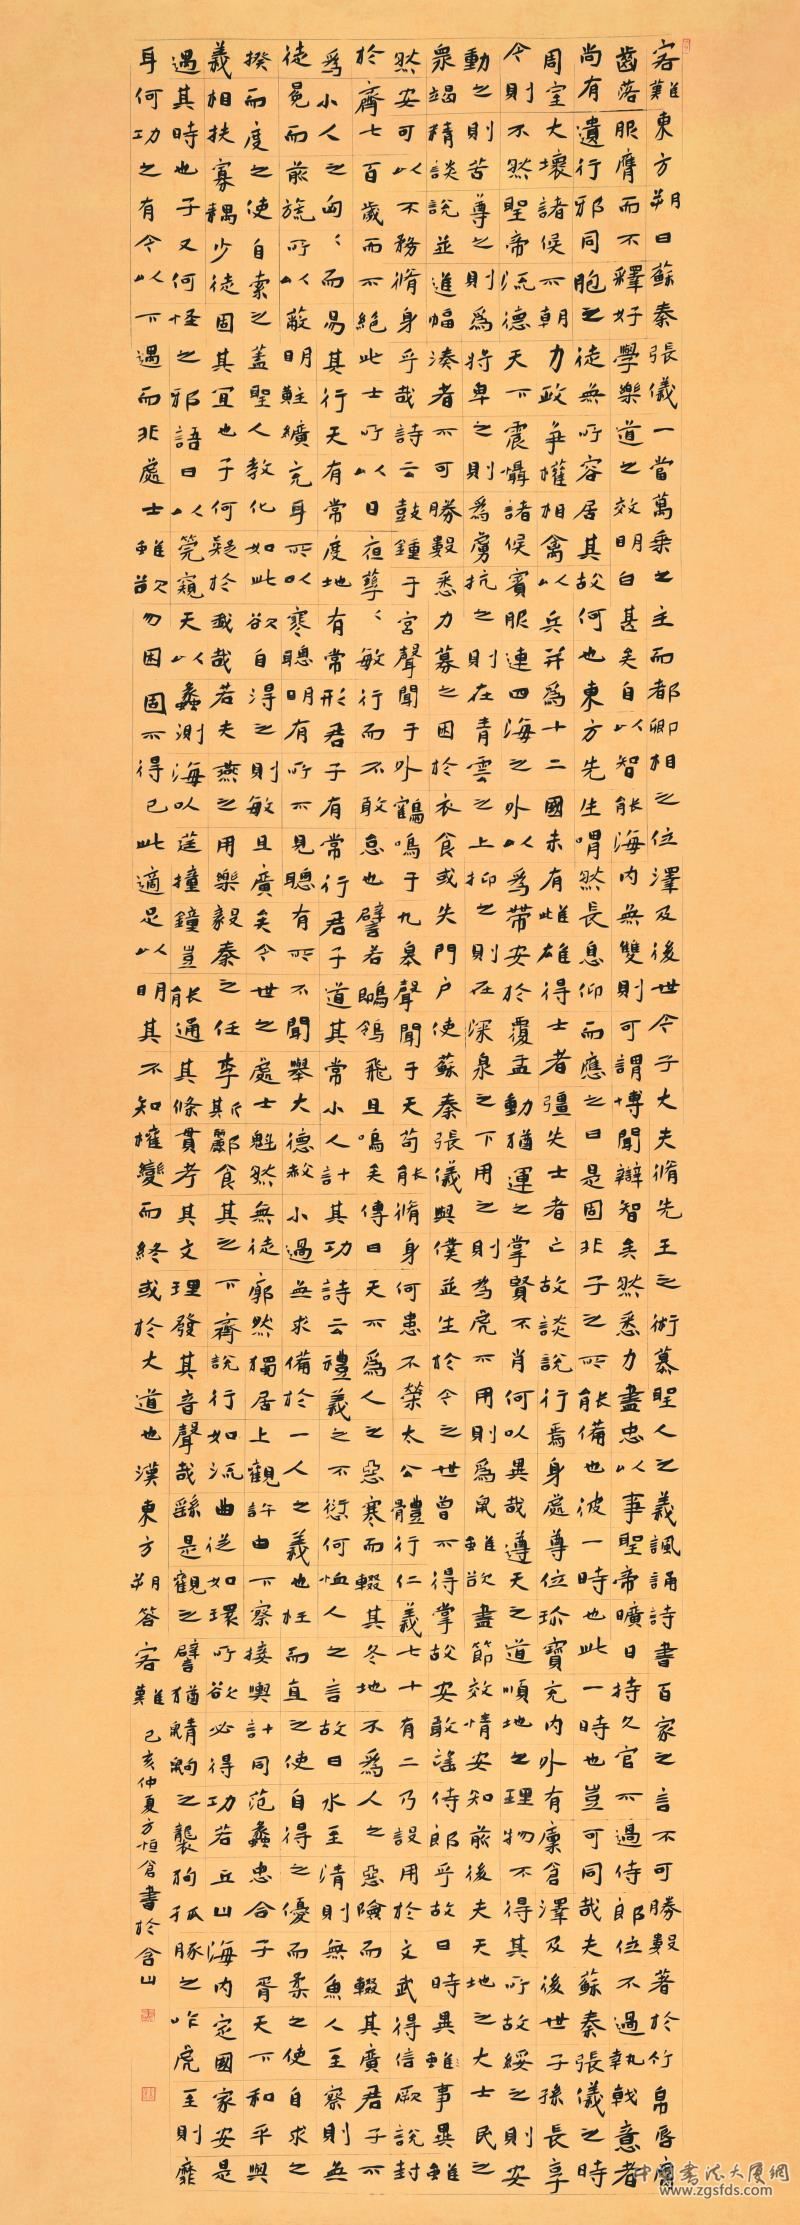 客難東方朔曰蘇秦張儀一當萬乘之主而都卿相之位澤及後世今子大夫脩先王之術慕聖人之義諷誦詩書百家之言不可勝數著於竹帛唇腐
齒落服膺而不釋好學樂道之效明白甚矣自以智能海內無雙則可謂博聞辯智矣然悉力盡忠以事聖帝曠日持久官不過侍郎位不過執戟意者
尚有遺行邪同胞之徒無所容居其故何也東方先生喟然長息仰而應之曰是固非子之所能備也彼一時也此一時也豈可同哉夫蘇秦張儀之時
周室大壞諸侯不朝力政爭權相禽以兵并為十二國未有雌雄得士者彊失士者亡故談說行焉身處尊位珍寶充內外有廩倉澤及後世子孫長享
今則不然聖帝流德天下震懾諸侯賓服連四海之外以為帶安於覆盂動猶運之掌賢不肖何以異哉遵天之道順地之理物不得其所故綏之則安
動之則苦尊之則為將卑之則為虜抗之則在青雲之上抑之則在深泉之下用之則為虎不用則為鼠雖欲盡節效情安知前後夫天地之大士民之
衆竭精談說並進幅湊者不可勝數悉力募之困於衣食或失門戶使蘇秦張儀與僕並生於今之世曾不得掌故安敢侍郎乎故曰時異雖事異雖
然安可以不務脩身乎哉詩云鼓鍾于宮聲聞于外鶴鳴于九皋聲聞于天苟能脩身何患不榮太公體行仁義七十有二乃設用於文武得信厥說封
於齊七百歲而不絕此士所以日夜孳〻敏行而不敢怠也譬若鶺鴒飛且鳴矣傳曰天不為人之惡寒而輟其冬地不為人之惡險而輟其廣君子不
為小人之匈〻而易其行天有常度地有常形君子有常行君子道其常小人計其功詩云禮義之不愆何恤人之言故曰水至清則無魚人至察則無
徒冕而前旒所以蔽明黈纊充耳所以塞聰明有所不見聰有所不聞舉大德赦小過無求備於一人之義也枉而直之使自得之優而柔之使自求之
揆而度之使自索之蓋聖人教化如此欲自得之則敏且廣矣今世之處士魁然無徒廓然獨居上觀許由下察接輿計同范蠡忠合子胥天下和平與
義相扶寡耦少徒固其宜也子何疑於我哉若夫燕之用樂毅秦之任李斯酈食其之下齊說行如流曲從如環所欲必得功若丘山海內定國家安是
遇其時也子又何怪之邪語曰以筦窺天以蠡測海以莛撞鐘豈能通其條貫考其文理發其音聲哉繇是觀之譬猶鼱鼩之襲狗孤豚之咋虎至則靡
耳何功之有今以下愚而非處士雖欲勿困固不得已此適足以明其不知權變而終或於大道也漢東方朔答客難己亥仲夏方恒倉書於含山
中國書法大厦網
www.zgsfds.com